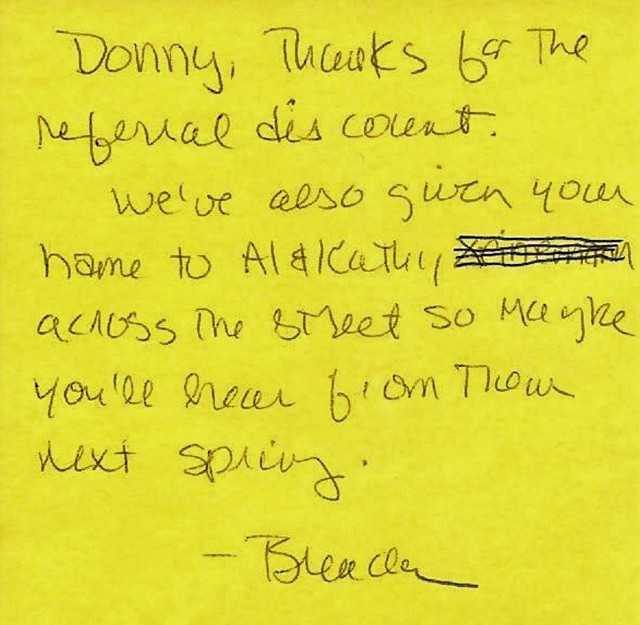 Donny, Thanks for The
referral discount.
We've also given your
name to Al & Kathy
across the street so maybe
you'll hear from Them
next spring.
- Brenda